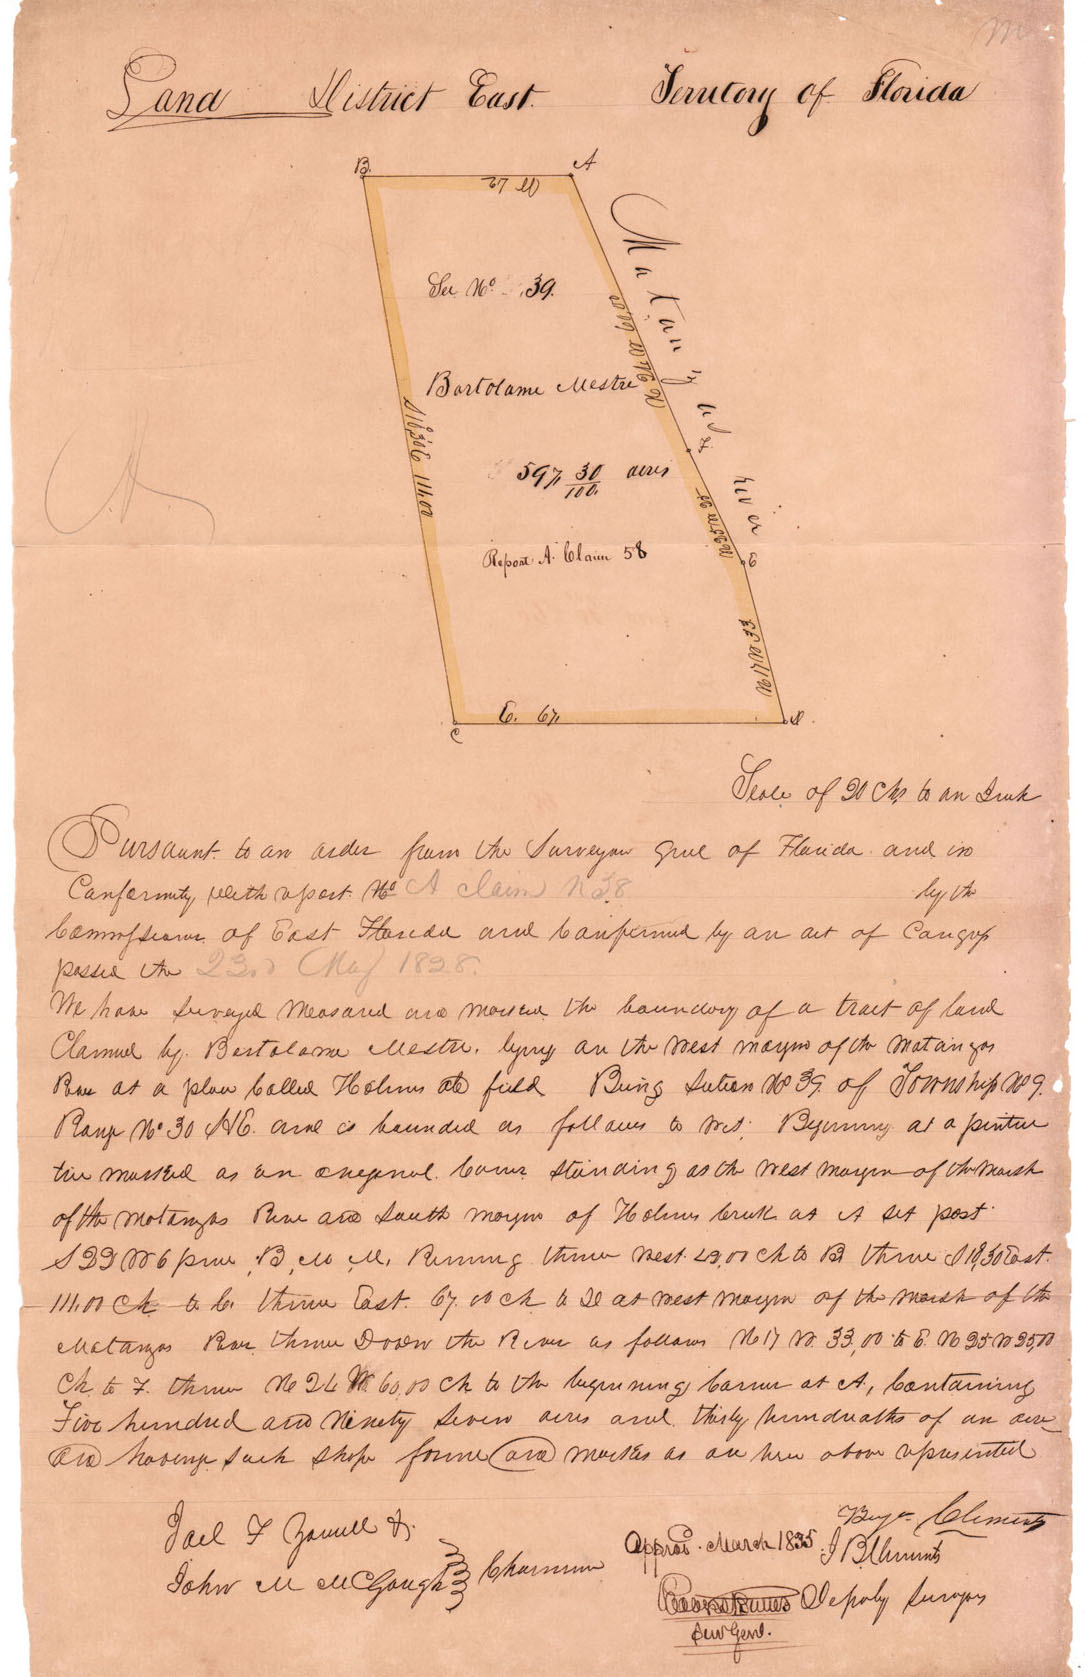 Land District East. Territory of Florida
B. A
W 27
Matanzas river
Sec No. 39.
N 24 W 60,00
Bartolame Mestre
S 10,30 E 111.00
F.
597 30/100 acres
N 25 W 25
Report A. Claim 58
E
N 17 W 33
E. 67
C D.
Scale of 20 Chs to an Inch
Pursuant to an order from the Surveyor Genl of Florida and in
Conformity with report No A claim N 58 by the
Commissioners of East Florida and Confirmed by an act of Congress
passed the 23rd May 1828.
We have Surveyed Measured and marked the boundary of a tract of land
Claimed by Bartolame Mestre. lying on the west margin of the Matanzas
River at a place Called Holmes old field Being Section No 39. of Township No 9.
Range No 30 S&E. and is bounded as follows to wit; Beginning at a
tree marked as an original Corner standing on the west margin of the Marsh
of the Matanzas River and South margin of Holmes Creek at A set post
S 22 W 6 pine B. M. M. Running thence west 00 Ch to B thence S 10,30 East.
111.00 Ch to C. thence East. 67.00 Ch to D at west margin of the Marsh of the
Matanzas River thence Down the River as follows N 17 W. 33,00 to E. N 25 W 25,00
Ch. to F. thence N 24 W 60,00 Ch to the beginning Corner at A, Containing
Five hundred and Ninety Seven acres and thirty hundredths of an acre
and having Such Shape forme and marks as are here above represented
Benjn Clements
Joel F
Approvd. March 1835. J B Clements
John M McGough Chainmen
Deputy Surveyors
Sur Genl.